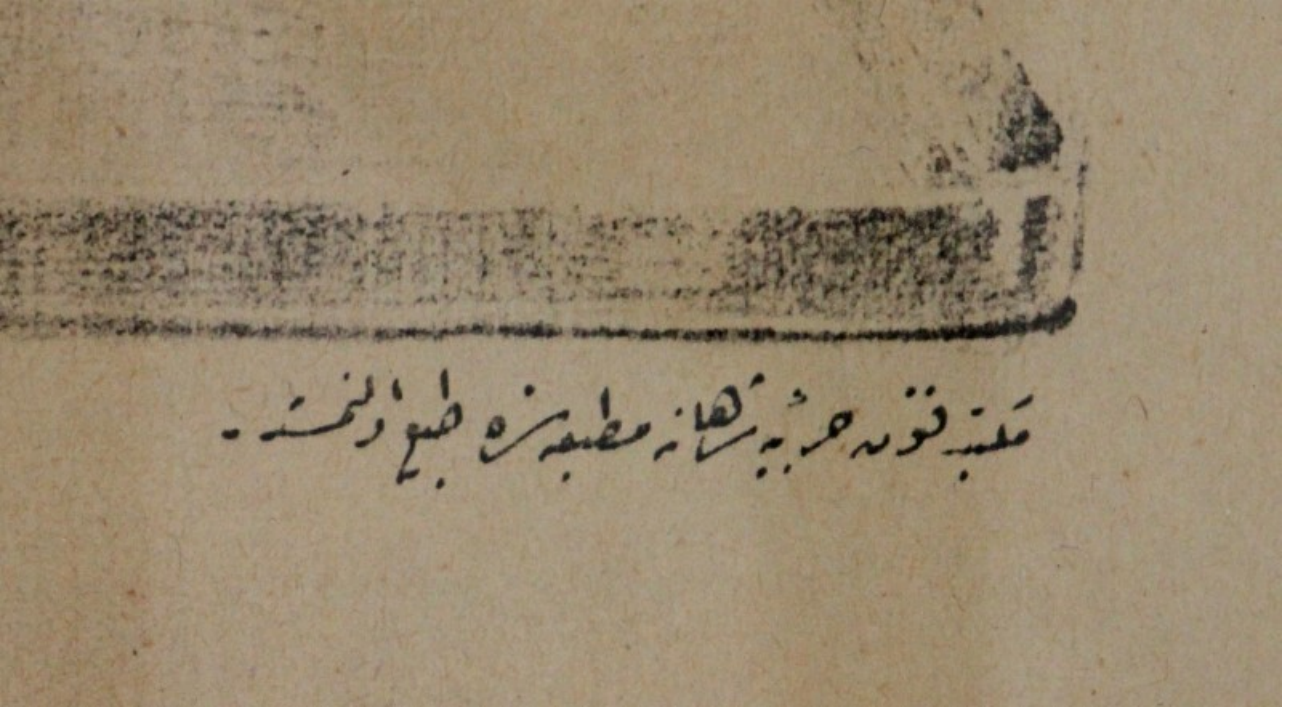 مكتب فنون حربیهٔ شاهانه مطبعه‌سنده طبع اولنمشدر.